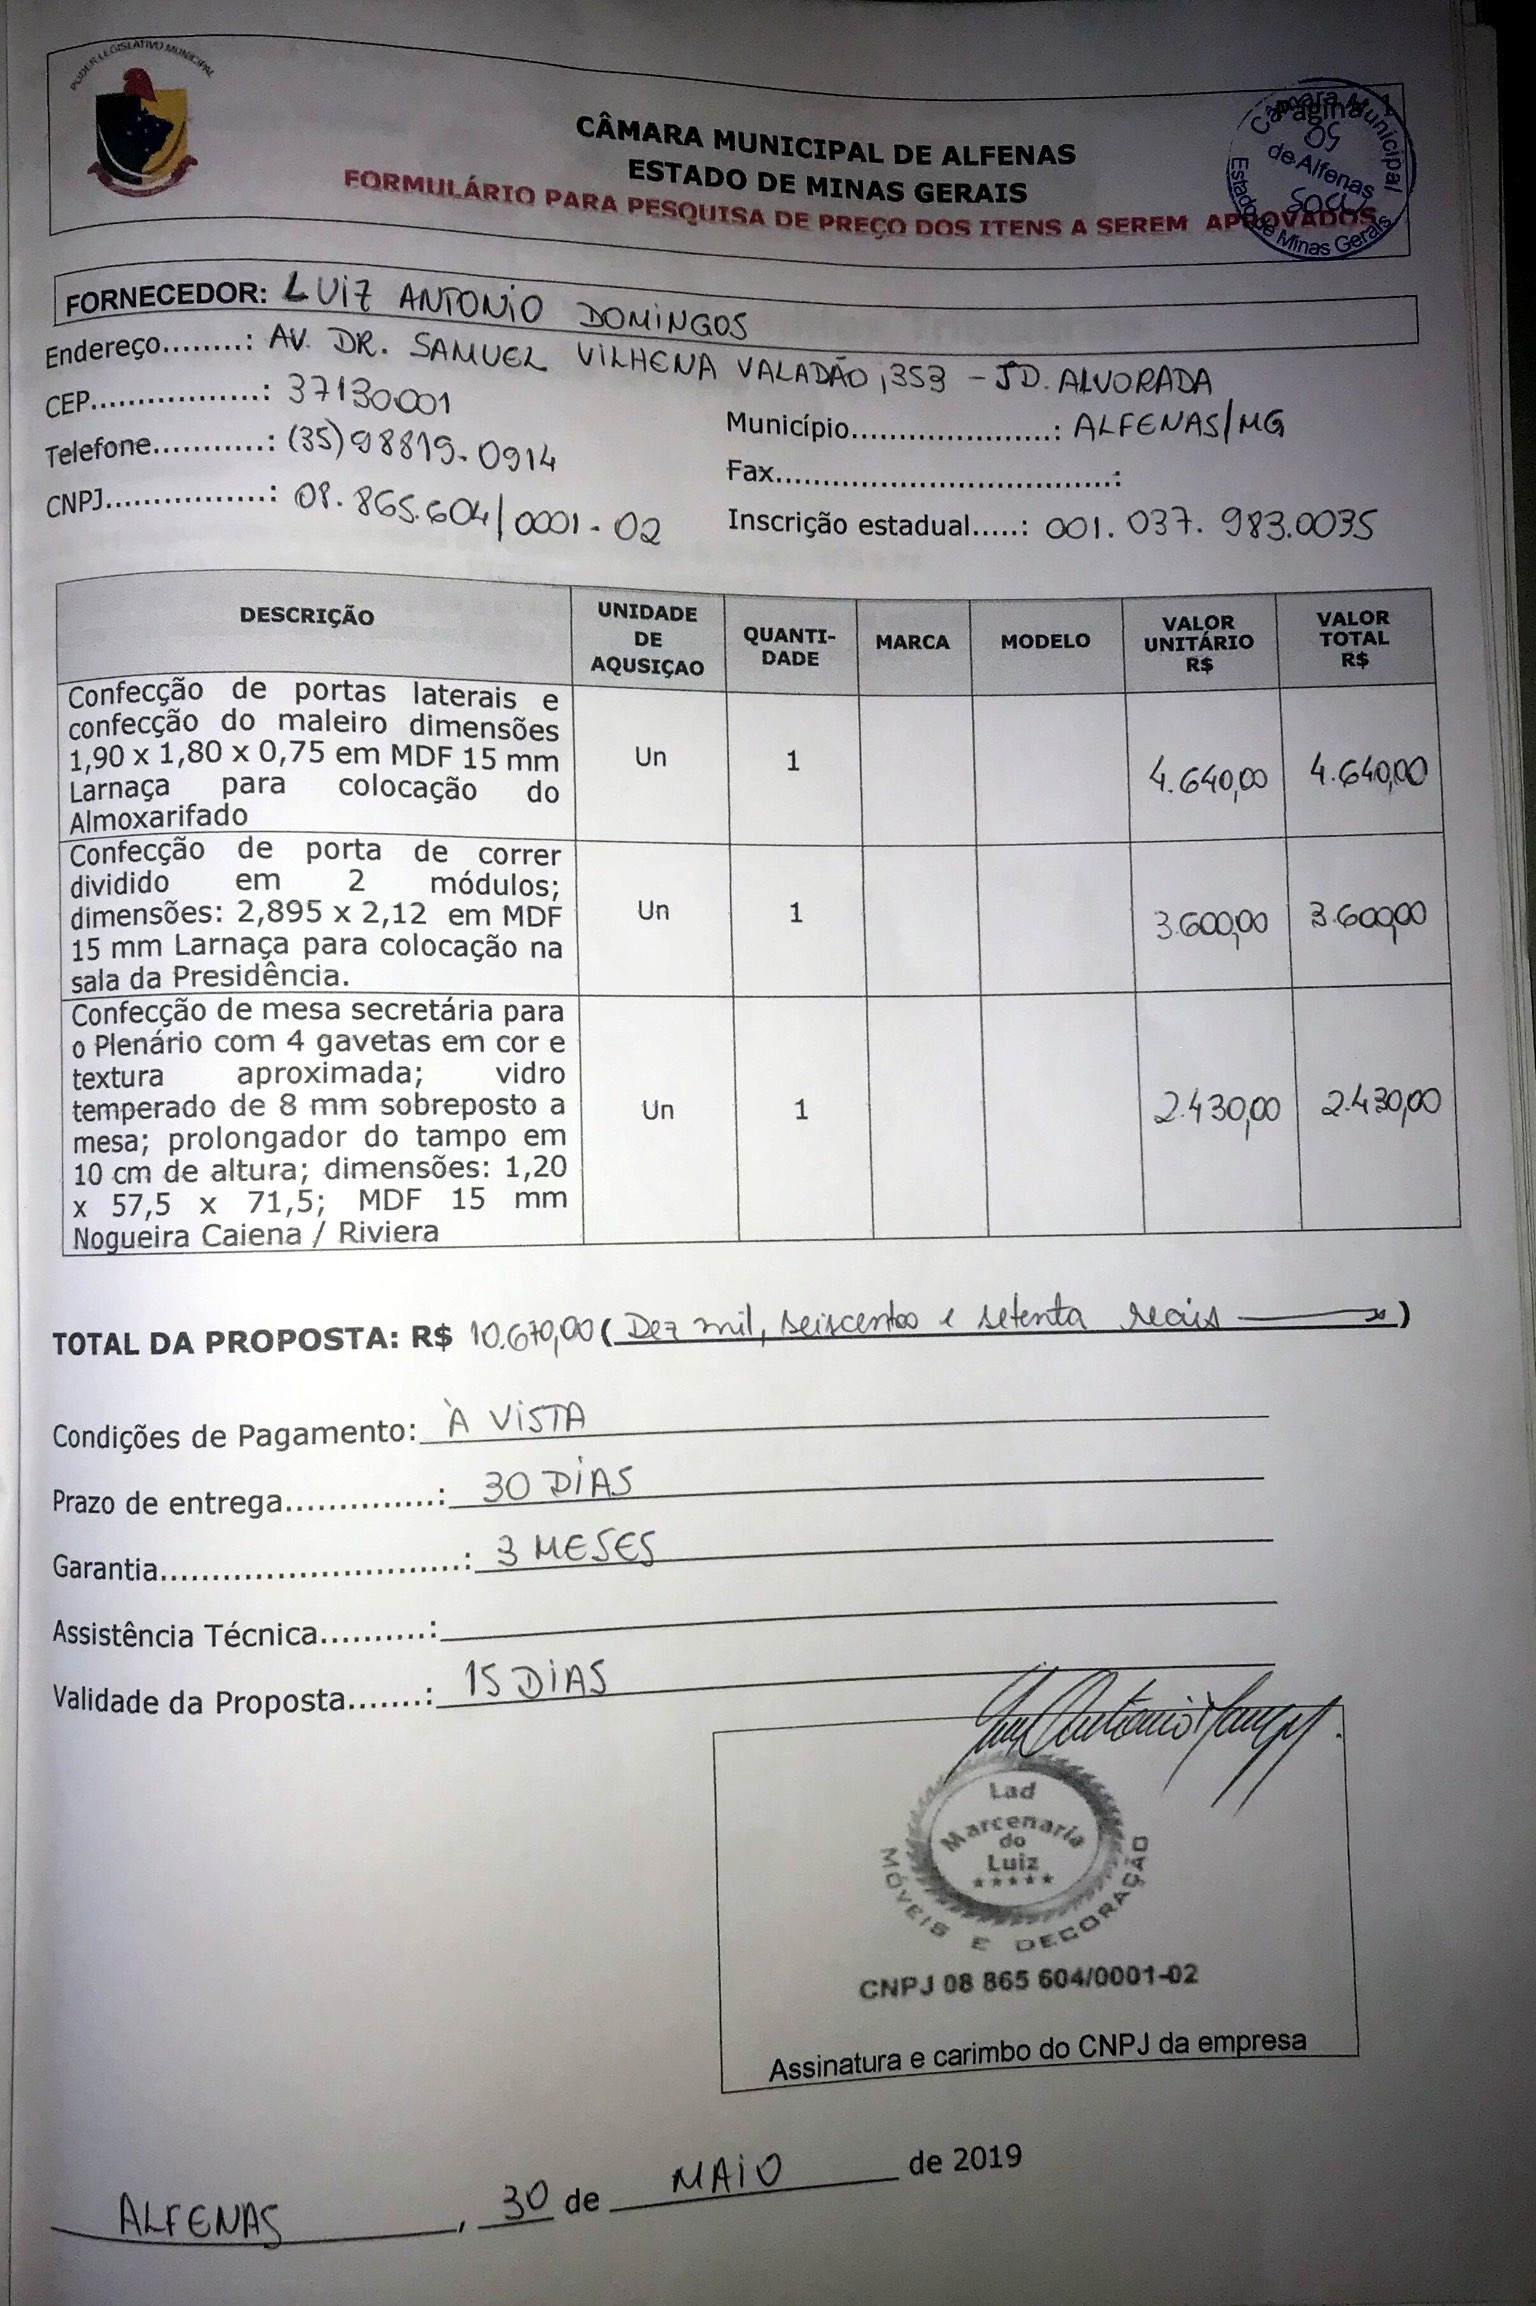 PODER LEGISLATIVO MUNICIPAL
CÂMARA MUNICIPAL DE ALFENAS
ESTADO DE MINAS GERAIS
FORMULÁRIO PARA PESQUISA DE PREÇO DOS ITENS A SEREM APROVADOS
Câmara Municipal
Página
05
de Alfenas
Estado de Minas Gerais
FORNECEDOR: LUIZ ANTONIO DOMINGOS
Endereço........: AV. DR. SAMUEL VILHENA VALADÃO, 353 - JD. ALVORADA
CEP..................: 37130001
Município......................: ALFENAS/MG
Telefone............: (35) 98819-0914
Fax....................................:
CNPJ.................: 08.865.604/0001-02
Inscrição estadual.....: 001.037.983.0035
DESCRIÇÃO
UNIDADE
DE
AQUSIÇAO
QUANTI-
DADE
MARCA
MODELO
VALOR
UNITÁRIO
R$
VALOR
TOTAL
R$
Confecção de portas laterais e
confecção do maleiro dimensões
1,90 x 1,80 x 0,75 em MDF 15 mm
Larnaça para colocação do
Almoxarifado
Un
1
4.640,00
4.640,00
Confecção de porta de correr
dividido em 2 módulos;
dimensões: 2,895 x 2,12 em MDF
15 mm Larnaça para colocação na
sala da Presidência.
Un
1
3.600,00
3.600,00
Confecção de mesa secretária para
o Plenário com 4 gavetas em cor e
textura aproximada; vidro
temperado de 8 mm sobreposto a
mesa; prolongador do tampo em
10 cm de altura; dimensões: 1,20
x 57,5 x 71,5; MDF 15 mm
Nogueira Caiena / Riviera
Un
1
2.430,00
2.430,00
TOTAL DA PROPOSTA: R$ 10.670,00 (Dez mil, seiscentos e setenta reais)
Condições de Pagamento: À VISTA
Prazo de entrega..............: 30 DIAS
Garantia...........................: 3 MESES
Assistência Técnica..........:
Validade da Proposta.......: 15 DIAS
Lad
Marcenaria
do
Luiz
★★★★★
MÓVEIS E DECORAÇÃO
CNPJ 08 865 604/0001-02
Assinatura e carimbo do CNPJ da empresa
ALFENAS, 30 de MAIO de 2019